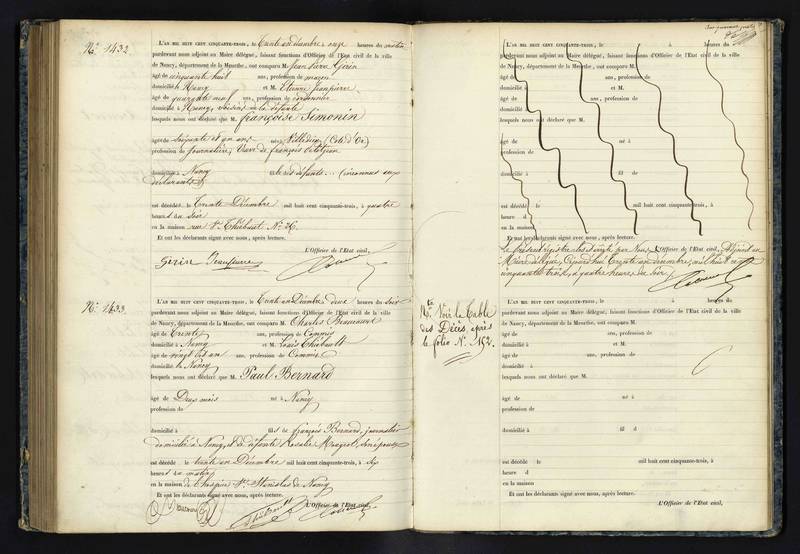 N° 1432
L'AN MIL HUIT CENT CINQUANTE-TROIS, le trente un Décembre onze heures du matin
pardevant nous adjoint au Maire délégué, faisant fonctions d'Officier de l'Etat civil de la ville
de Nancy, département de la Meurthe, ont comparu M. Jean Pierre Gérin
âgé de cinquante huit ans, profession de
domicilié à Nancy et M. Etienne Jeanpierre
âgé de quarante neuf ans, profession de cordonnier
domicilié à Nancy, voisins de la défunte
lesquels nous ont déclaré que M. françoise Simonin
âgée de soixante et un ans née à (Côte d'Or)
profession de Journalière, Veuve de françois
domiciliée à Nancy fille des défunts ... (inconnus aux
déclarants)
est décédée le trente Décembre mil huit cent cinquante-trois, à quatre
heures du soir
en la maison rue St Thiébaut N° 26
Et ont les déclarants signé avec nous, après lecture.
L'Officier de l'Etat civil,
Gérin Jeanpierre
N° 1433
L'AN MIL HUIT CENT CINQUANTE-TROIS, le trente un Décembre deux heures du soir
pardevant nous adjoint au Maire délégué, faisant fonctions d'Officier de l'Etat civil de la ville
de Nancy, département de la Meurthe, ont comparu M. Charles
âgé de trente ans, profession de Commis
domicilié à Nancy et M. Louis Thiébault
âgé de vingt et un ans, profession de Commis
domicilié à Nancy
lesquels nous ont déclaré que M. Paul Bernard
âgé de Deux mois né à Nancy
profession de
domicilié à fils de françois Bernard, journalier
domicilié à Nancy, et de défunte Rosalie
est décédé le trente un Décembre mil huit cent cinquante-trois, à six
heures du matin
en la maison de l'hospice St Stanislas de Nancy
Et ont les déclarants signé avec nous, après lecture.
L'Officier de l'Etat civil,
L'AN MIL HUIT CENT CINQUANTE-TROIS, le à heures du
pardevant nous adjoint au Maire délégué, faisant fonctions d'Officier de l'Etat civil de la ville
de Nancy, département de la Meurthe, ont comparu M.
âgé de ans, profession de
domicilié à et M.
âgé de ans, profession de
domicilié à
lesquels nous ont déclaré que M.
âgé de né à
profession de
domicilié à fil d
est décédé le mil huit cent cinquante-trois, à
heures d
en la maison
Et ont les déclarants signé avec nous, après lecture.
L'Officier de l'Etat civil,
Le présent registre clos et signé par Nous, Adjoint au
Maire délégué, Aujourd'hui trente un décembre, mil huit cent
cinquante trois, à quatre heures du soir
Nta Voir la Table
des Décès, après
le folio N° 152.
L'AN MIL HUIT CENT CINQUANTE-TROIS, le à heures du
pardevant nous adjoint au Maire délégué, faisant fonctions d'Officier de l'Etat civil de la ville
de Nancy, département de la Meurthe, ont comparu M.
âgé de ans, profession de
domicilié à et M.
âgé de ans, profession de
domicilié à
lesquels nous ont déclaré que M.
âgé de né à
profession de
domicilié à fil d
est décédé le mil huit cent cinquante-trois, à
heures d
en la maison
Et ont les déclarants signé avec nous, après lecture.
L'Officier de l'Etat civil,